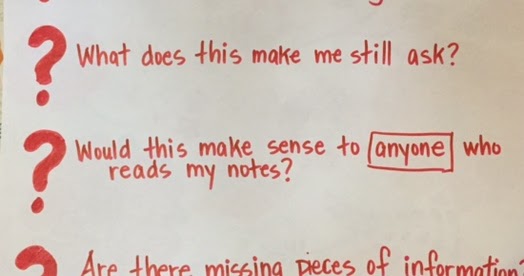 What does this make me still ask?
Would this make sense to anyone who
reads my notes?
Are there missing pieces of information?